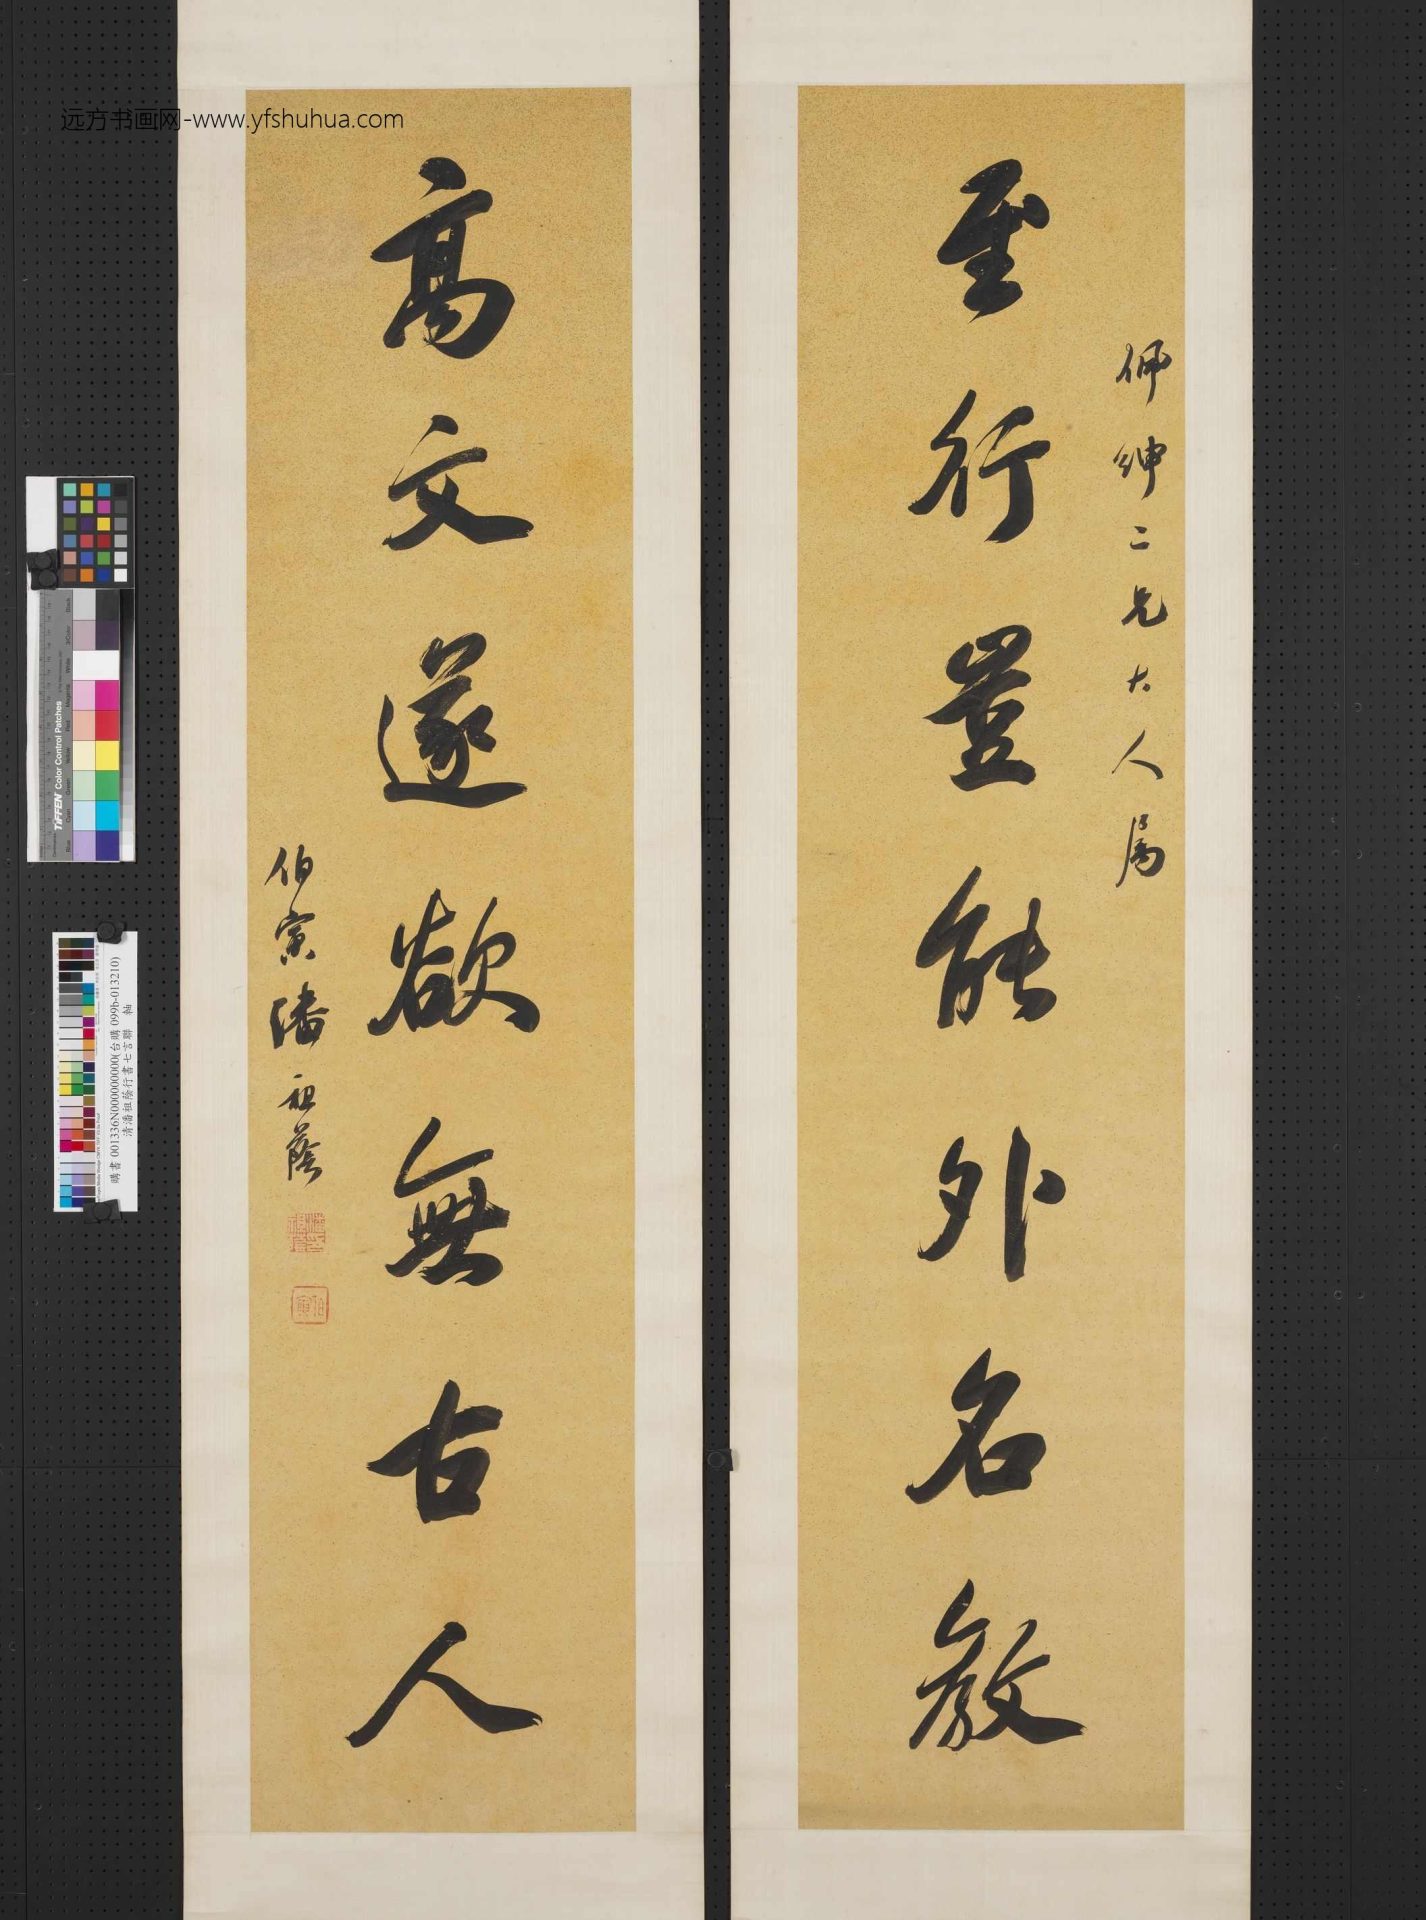 远方书画网-www.yfshuhua.com
佩紳二兄大人属
至行豈能外名教
高文遂欲無古人
伯寅潘祖蔭
伯寅
TIFFEN Color Control Patches
購書 001336N000000000(台購 099b-013210)
清潘祖蔭行書七言聯 軸